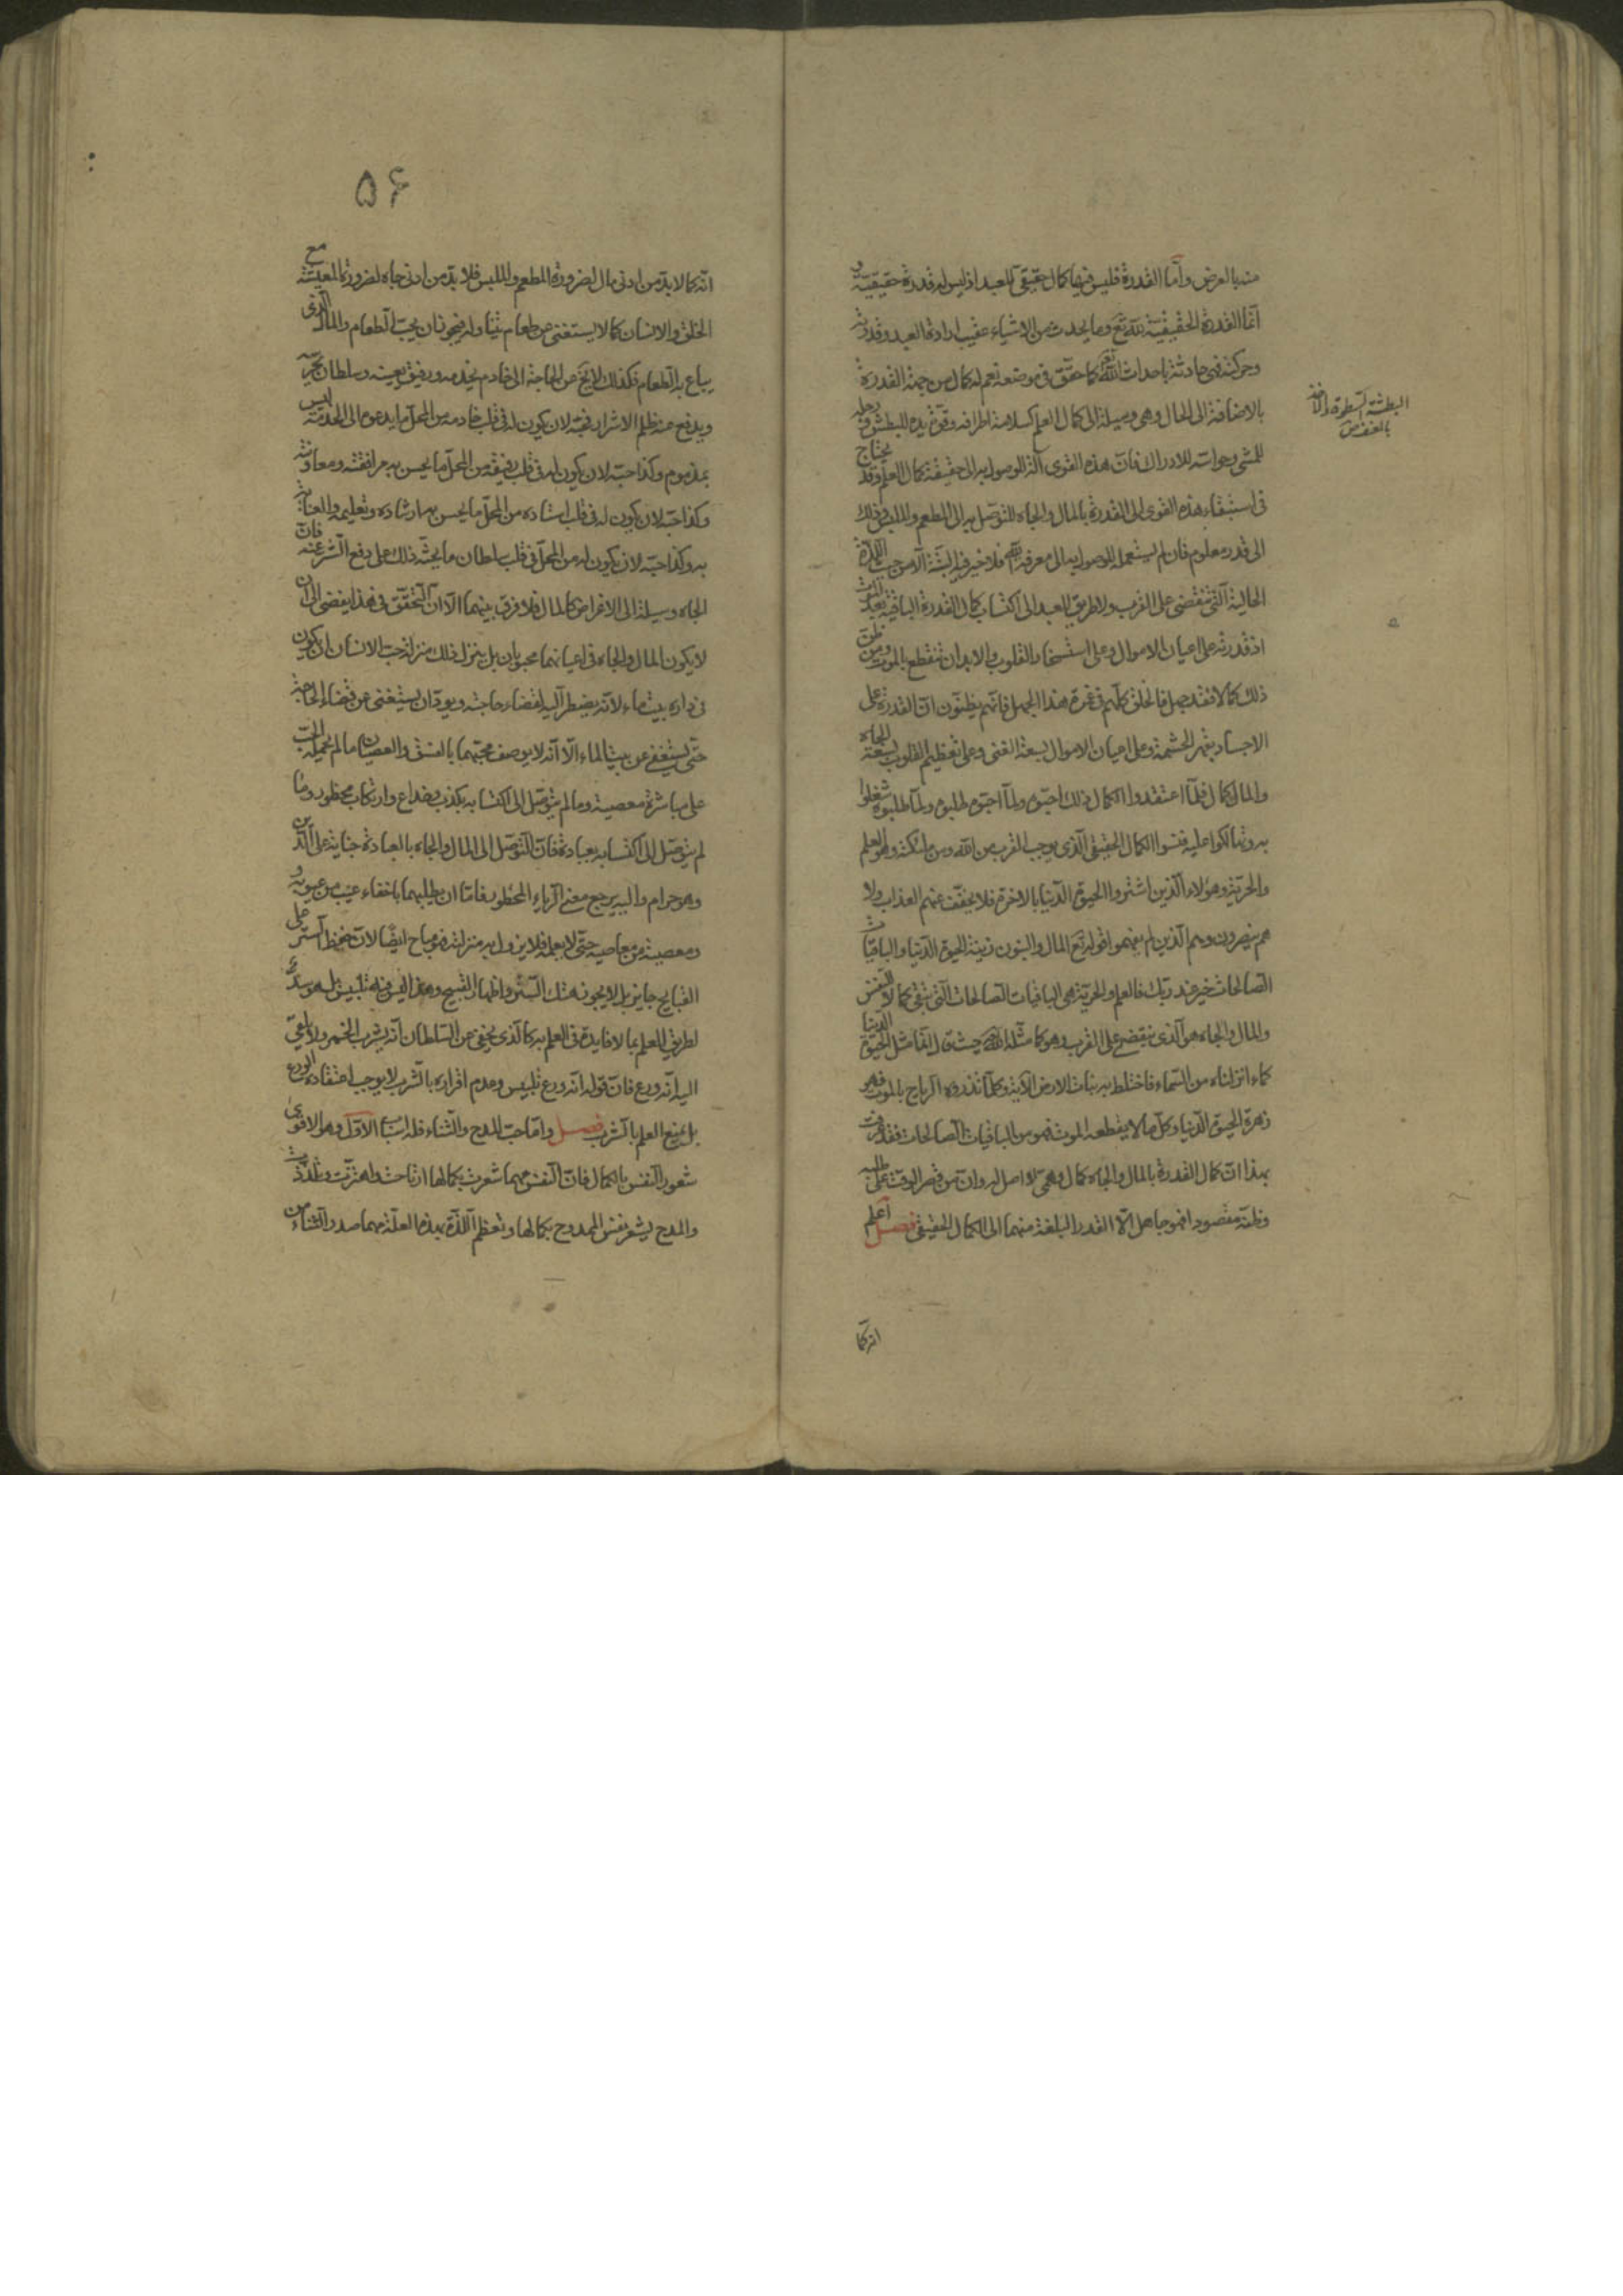 منه بالعرض وأمّا القدرة فليس فيها كمال حقيقي للعبد اذ ليس له قدرة حقيقيّة و
انّما القدرة الحقيقيّة للّه تع وما يحدث من الاشياء عقيب ارادة العبد وقدرته
وحركته فهى حادثة باحداث اللّه كما حقّق فى موضعه نعم له كمال من جهة القدرة
بالاضافة الى الحال وهى وسيلة الى كمال العلم كسلامة اطرافه وقوّة يده للبطش ورجله
للمشى وحواسّه للادراك فانّ هذه القوى آلة للوصول به الى حقيقة كمال العلم وقد يحتاج
فى استبقاء هذه القوى الى القدرة بالمال والجاه للتوصّل به الى المطعم والملبس وذلك
الى قدر معلوم فان لم يستعمله للوصول به الى معرفة اللّه فلا خير فيه البتّة الّا من حيث اللذّة
الحاليّة الّتى تنقضى على القرب ولا طريق للعبد الى اكتساب كمال القدرة الباقية بعد الموت
اذ قدرته على اعيان الاموال وعلى استسخار القلوب والابدان تنقطع بالموت ومن ظنّ
ذلك كمالا فقد جهل فالخلق كلّهم فى غمرة هذا الجهل فانّهم يظنّون انّ القدرة على
الاجساد بقهر الحشمة وعلى اعيان الاموال بسعة الغنى وعلى تعظيم القلوب بسعة الجاه
والمال كمال فلمّا اعتقدوا الكمال ذلك احبّوه ولمّا احبّوه طلبوه ولمّا طلبوه شغلوا
به وتهالكوا عليه فنسوا الكمال الحقيقى الّذى يوجب القرب من اللّه ومن ملئكته وهو العلم
والحريّة وهؤلاء الّذين اشتروا الحيوة الدّنيا بالاخرة فلا يخفّف عنهم العذاب ولا
هم ينصرون وهم الّذين لم يفهموا قوله تع المال والبنون زينة الحيوة الدّنيا والباقيات
الصّالحات خير عند ربّك فالعلم والحريّة هى الباقيات الصّالحات الّتى تبقى كمالا للنّفس
والمال والجاه هو الّذى ينقضى على القرب وهو كما مثّله اللّه حيث قال انّما مثل الحيوة الدّنيا
كماء انزلناه من السّماء فاختلط به نبات الارض الآية وكلّما تذروه الرياح بالموت فهو
زهرة الحيوة الدّنيا وكلّ ما لا يقطعه الموت فهو من الباقيات الصّالحات فقد عرفت
بهذا انّ كمال القدرة بالمال والجاه كمال وهمىّ لا اصل له وانّ من قصر الوقت على طلبه
وظنّه مقصودا فهو جاهل الّا القدر البلغة منهما الى الكمال الحقيقى فصل اعلم
انّه كما
البطشة السطوة والاخذ
بالعنف ص
۵۶
انّه كما لا بدّ من ادنى مال لضرورة المطعم والملبس فلا بدّ من ادنى جاه لضرورة المعيشة مع
الخلق والانسان كما لا يستغنى عن طعام يتناوله فيجوز ان يحبّ الطعام والمال الّذى
يباع به الطعام فكذلك لا يخ عن الحاجة الى خادم يخدمه ورفيق يعينه وسلطان يحرسه
ويدفع عنه ظلم الاشرار فحبّه لان يكون له فى قلب خادمه من المحلّ ما يدعوه الى الخدمة ليس
بمذموم وكذا حبّه لان يكون له فى قلب رفيقه من المحلّ ما يحسن به مرافقته ومعاونته
وكذا حبّه لان يكون له فى قلب استاده من المحلّ ما يحسن به ارشاده وتعليمه والعناية
به وكذا حبّه لان يكون له من المحلّ فى قلب سلطان ما يحثّه ذلك على دفع الشّر عنه فانّ
الجاه وسيلة الى الاغراض كالمال فلا فرق بينهما الّا انّ التحقّق فى هذا يفضى الى ان
لا يكون المال والجاه فى اعيانهما محبوبان بل ينزل ذلك منزلة حبّ الانسان ان يكون
فى داره بيت ماء لانّه يضطرّ اليه لقضاء حاجته ويودّ ان يستغنى عن قضاء الحاجة
حتّى يستغنى عن بيت الماء الّا انّه لا يوصف محبّهما بالفسق والعصيان ما لم يحمله الحبّ
على مباشرة معصية وما لم يتوصّل الى اكتسابه بكذب وخداع وارتكاب محظور وما
لم يتوصّل الى اكتسابه بعبادة فانّ التوصّل الى المال والجاه بالعبادة جناية على الدّين
وهو حرام واليه يرجع معنى الرياء المحظور فامّا ان يطلبهما باخفاء عيب من عيوبه و
معصية من معاصيه حتّى لا يعلم فلا يزول به منزلته فهو مباح ايضا لانّ حفظ السّتر على
القبايح جايز بل لا يجوز هتك السّتر واظهار القبيح وهذا ليس فيه تلبيس بل هو سدّ
لطريق العلم بما لا فايدة فى العلم به كالّذى يخفى عن السّلطان انّه يشرب الخمر ولا يلقى
اليه انّه ورع فانّ قوله انّه ورع تلبيس وعدم اقراره بالشّرب لا يوجب اعتقاده الورع
بل يمنع العلم بالشّرب فصل وامّا حبّ المدح والثّناء فله اسباب الاوّل وهو الاقوى
شعور النّفس بالكمال فانّ النّفس مهما شعرت بكمالها ارتاحت واهتزّت وتلذّذت
والمدح يشعر نفس الممدوح بكمالها وتعظم اللّذّة بهذه العلّة مهما صدر الثّناء من